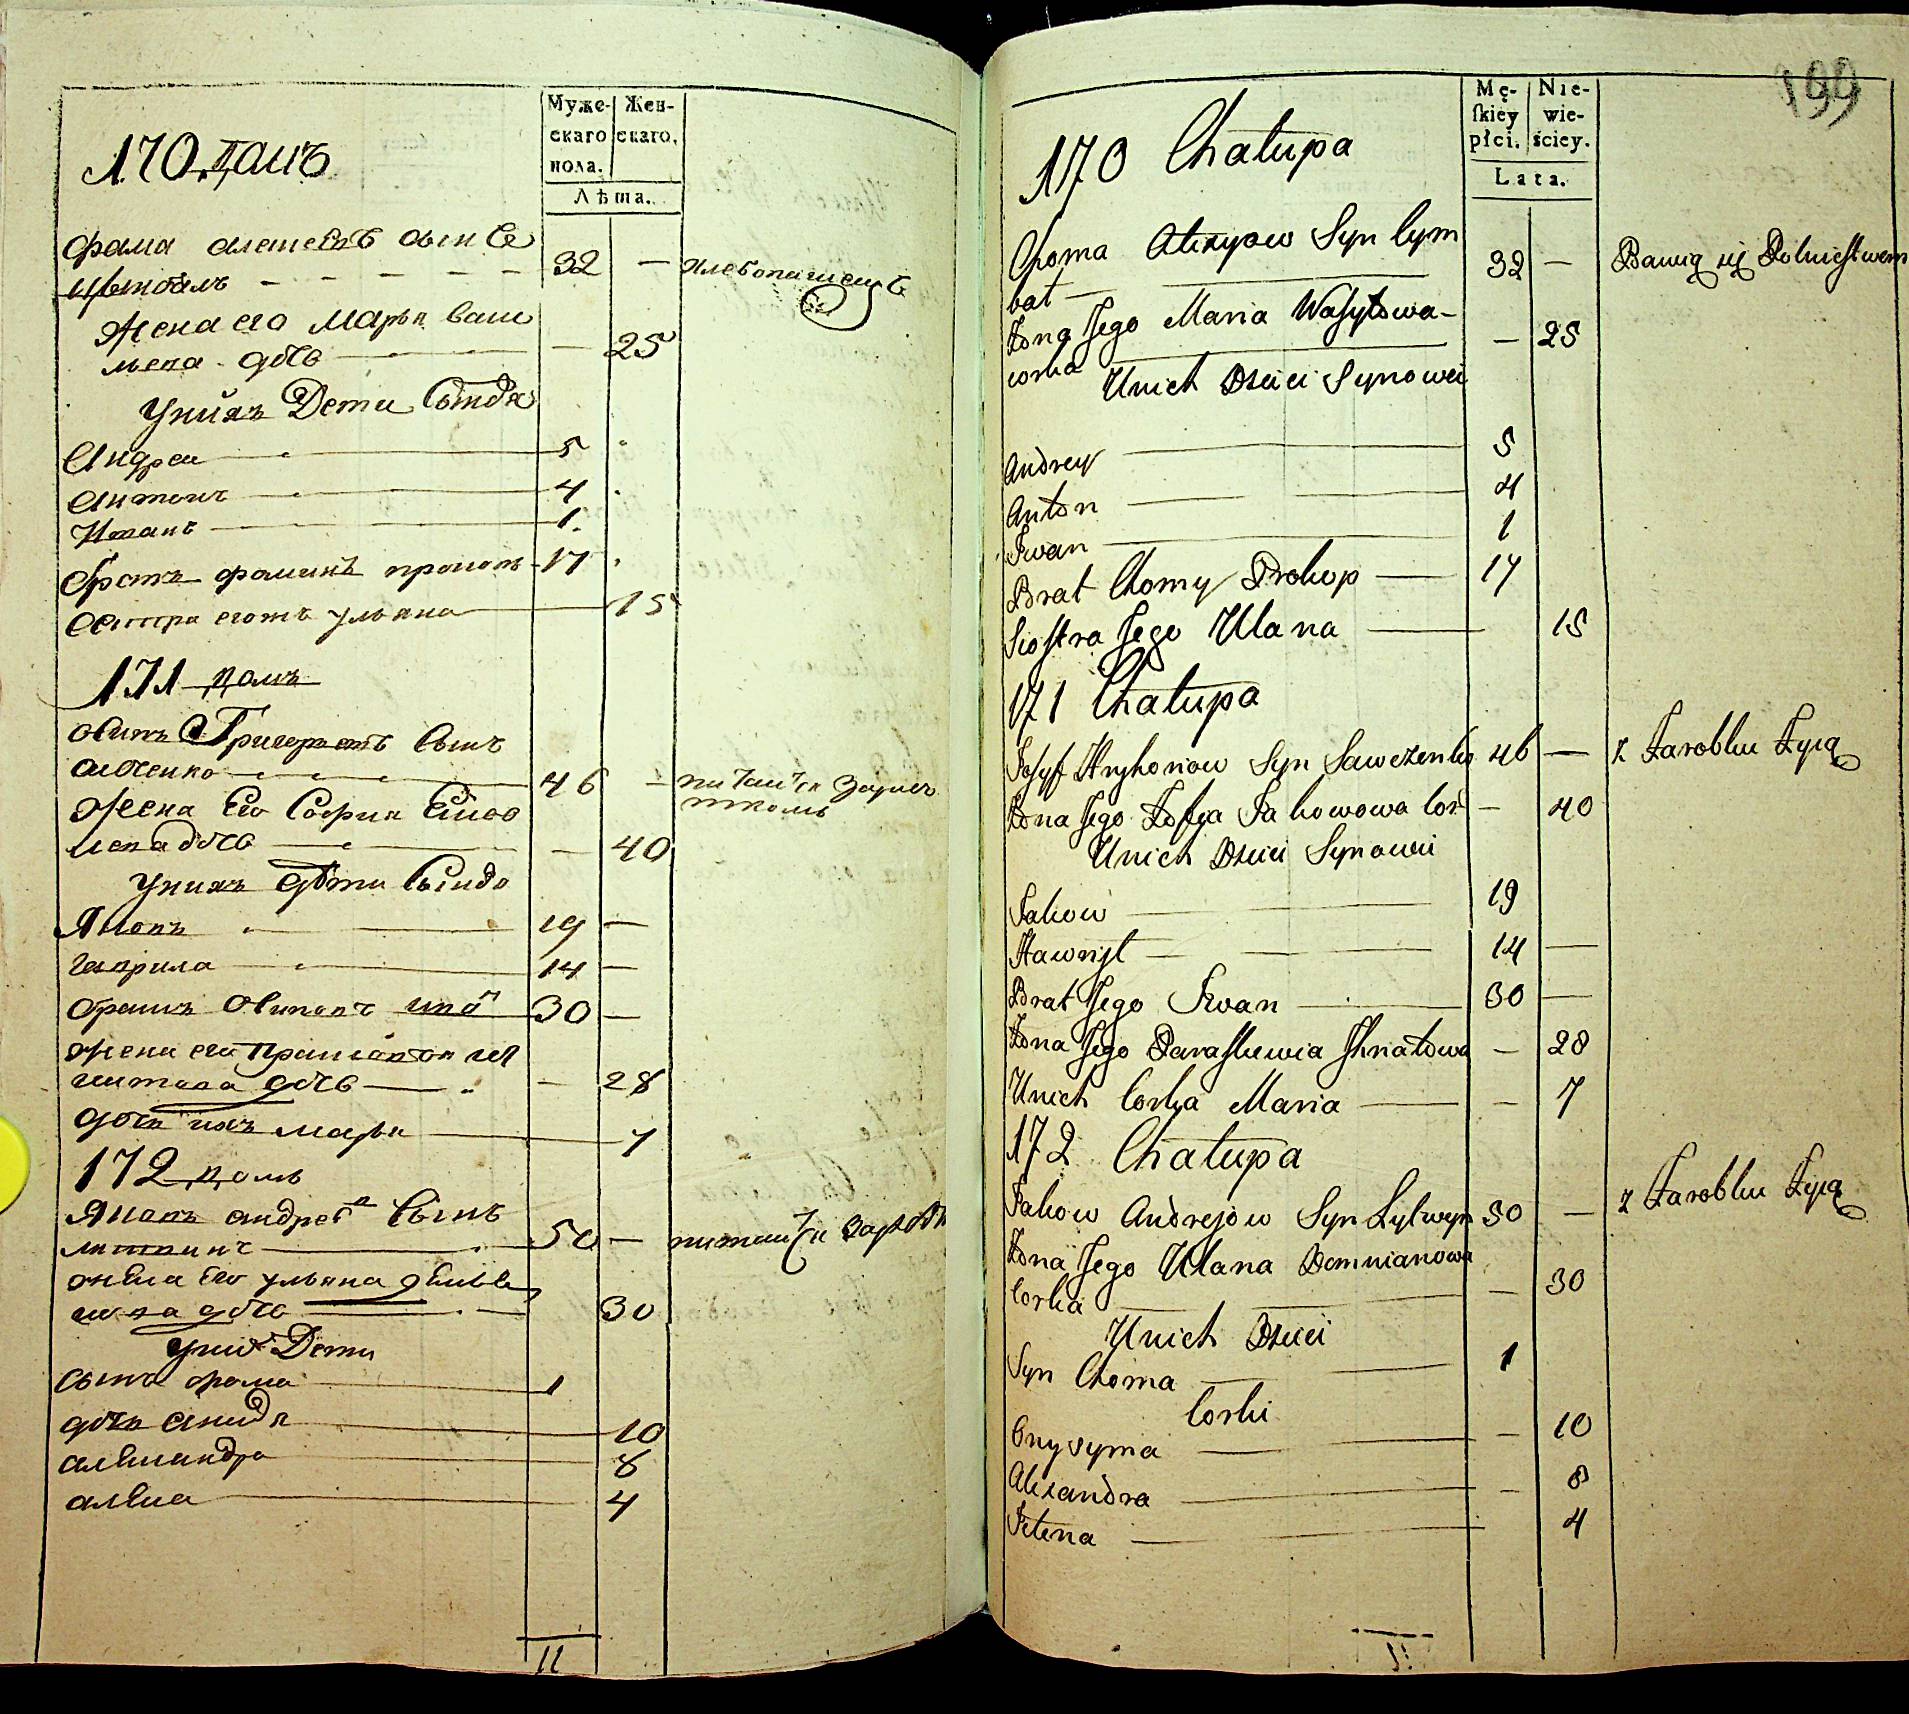 Муже-
скаго
пола.
Жен-
скаго.
Лѣта.
170 домъ
Фама алексеевъ сынъ
32 — хлебопашест
Жена его Марья васи
льева дочь — 25
У нихъ Дети
Андреи 5
Антонъ 4
Иванъ 1
братъ фоминъ прокопъ 17
Сестра егожъ ульяна 15
171 домъ
осипъ Григорьевъ Сынъ
савченко 46 —
Жена Его София Яков
лева дочь — 40
У нихъ дѣти
Яковъ 19 —
гаврила 14 —
братъ Осиповъ 30 —
жена его
дочь — 28
дочь ихъ марья 7
172 домъ
Яковъ андреевъ Сынъ
литвинъ 50 —
жена Его ульяна
дочь 30
У них Дети
сынъ фома 1
дочь 10
александра 8
алена 4
11
199
Mę-
skiey
płci.
Nie-
wie-
ściey.
Lata.
170 Chałupa
Choma Alexyow Syn Cym
bał 32 — Bawią się Rolnictwem
Żona Jego Maria Wasylowa
corka — 25
U nich Dzieci Synowei
Andrey 5
Anton 4
Iwan 1
Brat Chomy Prokop 17
Siostra Jego Ulana 15
171 Chałupa
Josyf Hryhorow Syn Sawczenko 46 — z Zarobku Żyią
Żona Jego Zofya Jakowowa Cor — 40
U nich Dzieci Synowei
Jakow 19
Hawrył 14 —
Brat Jego Iwan 30 —
Żona Jego Paraskewia Ihnatowa — 28
U nich Corka Maria — 7
172 Chałupa
Jakow Andrejow Syn Lytwyn 50 — z Zarobku Żyią
Żona Jego Ulana Domnianowa
Corka — 30
U nich Dzieci
Syn Choma 1
Corki
Onysyma — 10
Alexandra — 8
Jełena 4
11